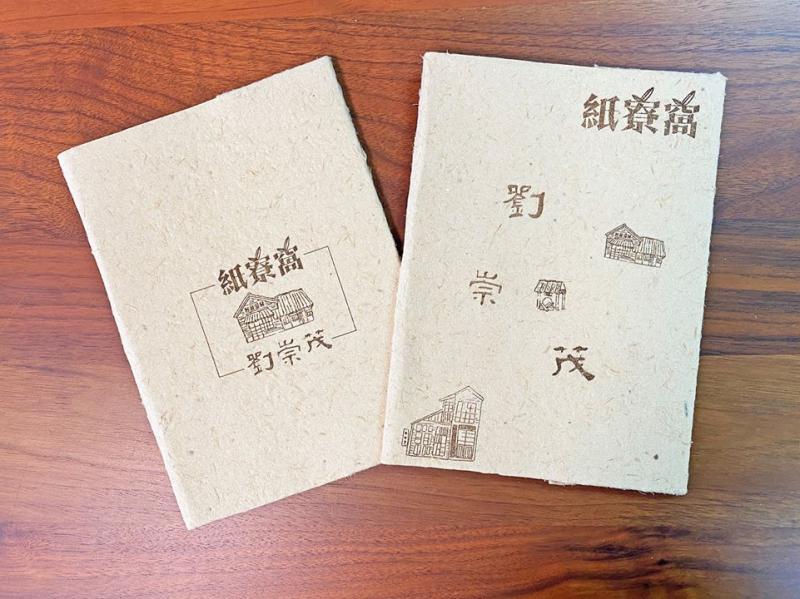 紙寮窩
劉崇茂
紙寮窩
劉
崇
茂